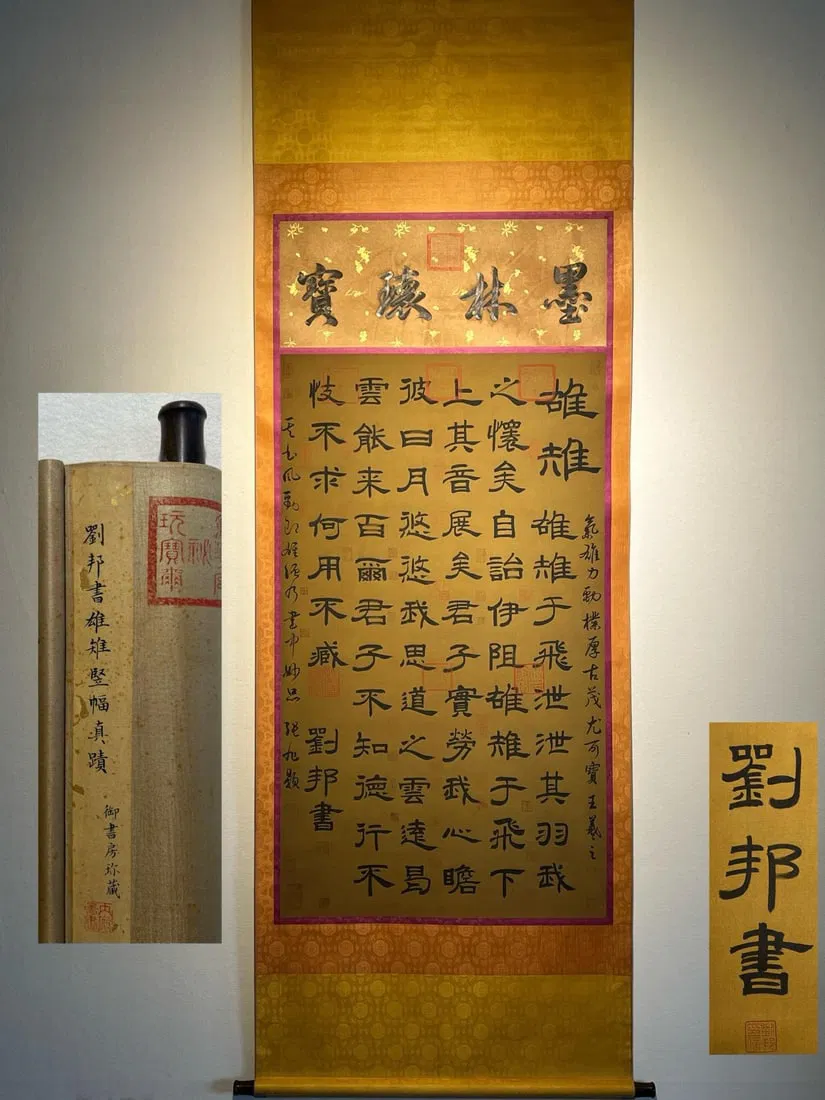 墨林瓌寶
氣雄力勁樸厚古茂尤可寶 王羲之
雄雉 雄雉于飛泄泄其羽我
之懷矣自詒伊阻雄雉于飛下
上其音展矣君子實勞我心瞻
彼日月悠悠我思道之雲遠曷
雲能来百爾君子不知德行不
忮不求何用不臧 劉邦書
其書風勁 雄強乃書中妙品 張旭題
劉邦書雄雉竪幅真蹟
御書房珍藏
劉邦書